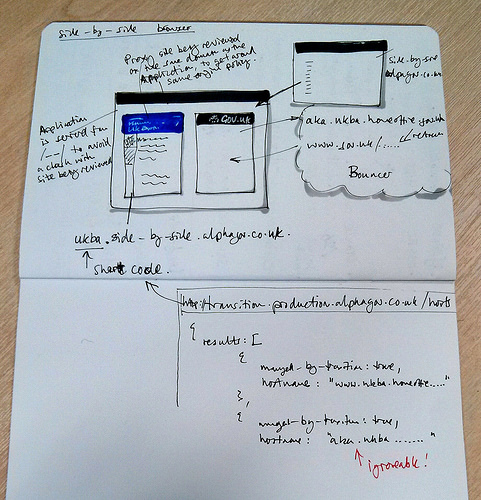 side-by-side browser
Proxy site being reviewed
on the same domain as the
Application, to get around
same origin policy.
side-by-side
alphagov.co.uk
Application
is served from
/__/ to avoid
a clash with
site being reviewed
Home
UK Border
GOV.UK
aka.ukba.homeoffice.gov.uk
www.gov.uk/.....
return
Bouncer
ukba.side-by-side.alphagov.co.uk
short code.
http://transition.production.alphagov.co.uk/hosts
{
results: [
{
managed-by-transition: true,
hostname: "www.ukba.homeoffice...."
},
{
managed-by-transition: true,
hostname: "aka.ukba ......."
ignoreable!